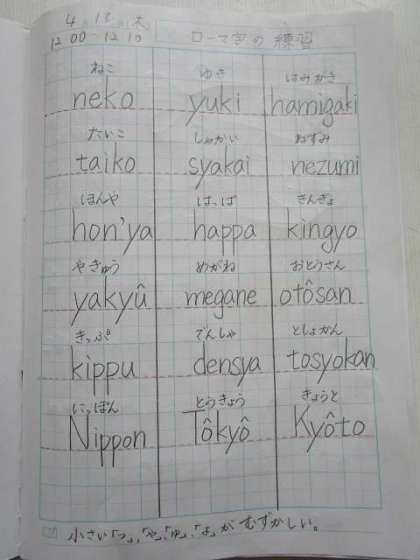 4 13 火
12:00-12:10 ローマ字の練習
ねこ ゆき はみがき
neko yuki hamigaki
たいこ しゃかい ねずみ
taiko syakai nezumi
ほんや はっぱ きんぎょ
hon'ya happa kingyo
やきゅう めがね おとうさん
yakyû megane otôsan
きっぷ でんしゃ としょかん
kippu densya tosyokan
にっぽん とうきょう きょうと
Nippon Tôkyô Kyôto
小さい「っ」、「ゃ」、「ゅ」、「ょ」がむずかしい。